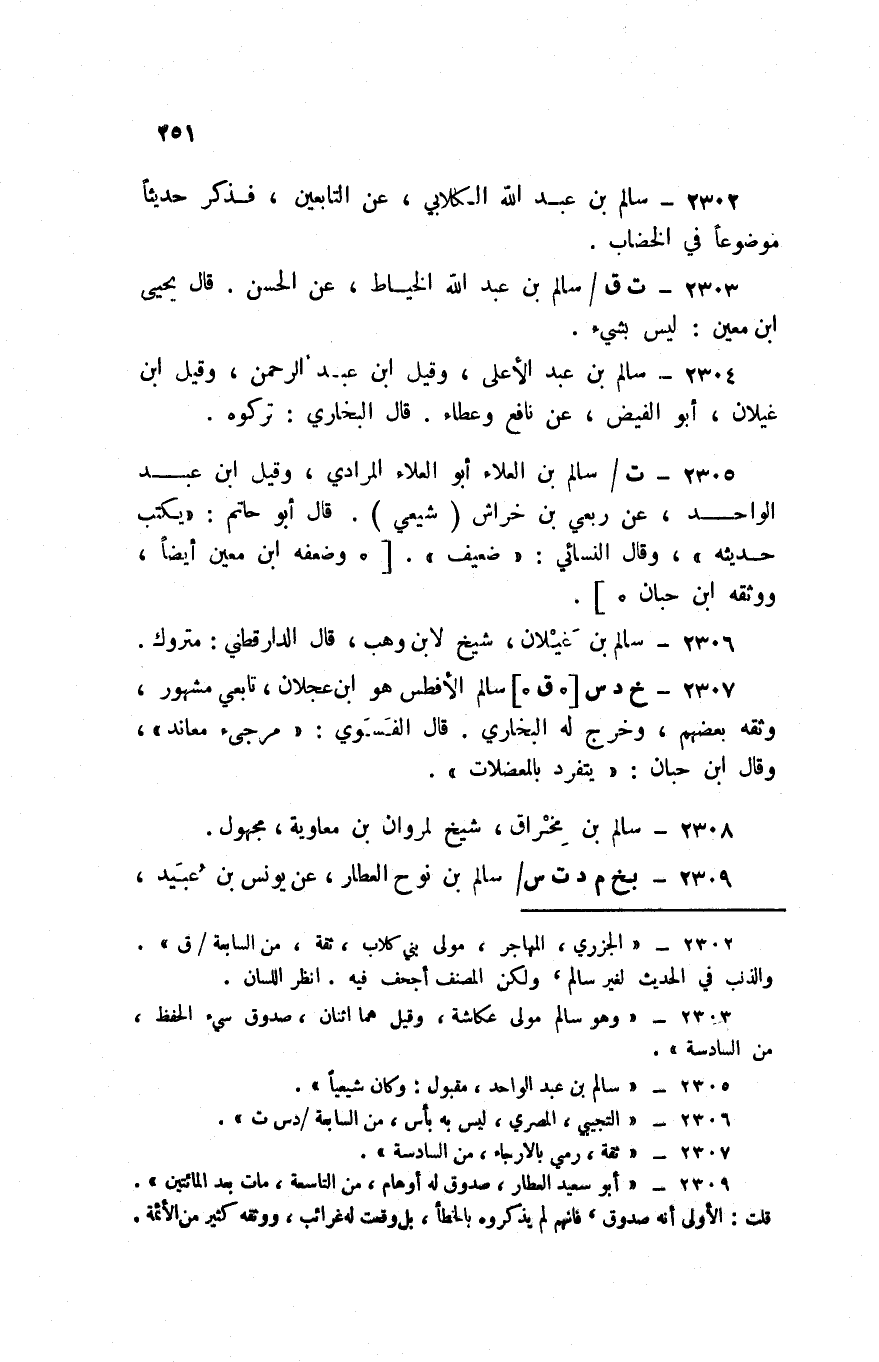 ٢٥١
٢٣٠٢ – سالم بن عبد الله الكلابي ، عن التابعين ، فذكر حديثاً
موضوعاً في الخضاب .
٢٣٠٣ – ت ق / سالم بن عبد الله الخياط ، عن الحسن . قال يحيى
ابن معين : ليس بشيء .
٢٣٠٤ – سالم بن عبد الأعلى ، وقيل ابن عبد الرحمن ، وقيل ابن
غيلان ، أبو الفيض ، عن نافع وعطاء . قال البخاري : تركوه .
٢٣٠٥ – ت / سالم بن العلاء أبو العلاء المرادي ، وقيل ابن عبد
الواحد ، عن ربعي بن خراش ( شيعي ) . قال أبو حاتم : «يكتب
حديثه » ، وقال النسائي : « ضعيف » . [ ٥ وضعفه ابن معين أيضاً ،
ووثقه ابن حبان ٥ ] .
٢٣٠٦ – سالم بن غَيْلان ، شيخ لابن وهب ، قال الدارقطني : متروك .
٢٣٠٧ – خ د س [ ٥ ق ٥ ] سالم الأفطس هو ابن عجلان ، تابعي مشهور ،
وثقه بعضهم ، وخرج له البخاري . قال الفَسَوي : « مرجىء معاند » ،
وقال ابن حبان : « يتفرد بالمعضلات » .
٢٣٠٨ – سالم بن مِخْراق ، شيخ لمروان بن معاوية ، مجهول .
٢٣٠٩ – بخ م د ت س / سالم بن نوح العطار ، عن يونس بن عُبَيد ،
٢٣٠٢ – « الجزري ، المهاجر ، مولى بني كلاب ، ثقة ، من السابعة / ق » .
والذنب في الحديث لغير سالم ، ولكن المصنف أجحف فيه . انظر اللسان .
٢٣٠٣ – « وهو سالم مولى عكاشة ، وقيل هما اثنان ، صدوق سيء الحفظ ،
من السادسة » .
٢٣٠٥ – « سالم بن عبد الواحد ، مقبول : وكان شيعياً » .
٢٣٠٦ – « التجيبي ، المصري ، ليس به بأس ، من السابعة / د س ت » .
٢٣٠٧ – « ثقة ، رمي بالارجاء ، من السادسة » .
٢٣٠٩ – « أبو سعيد العطار ، صدوق له أوهام ، من التاسعة ، مات بعد المائتين » .
قلت : الأولى أنه صدوق ، فانهم لم يذكروه بالخطأ ، بل وقعت له غرائب ، ووثقه كثير من الأئمة .